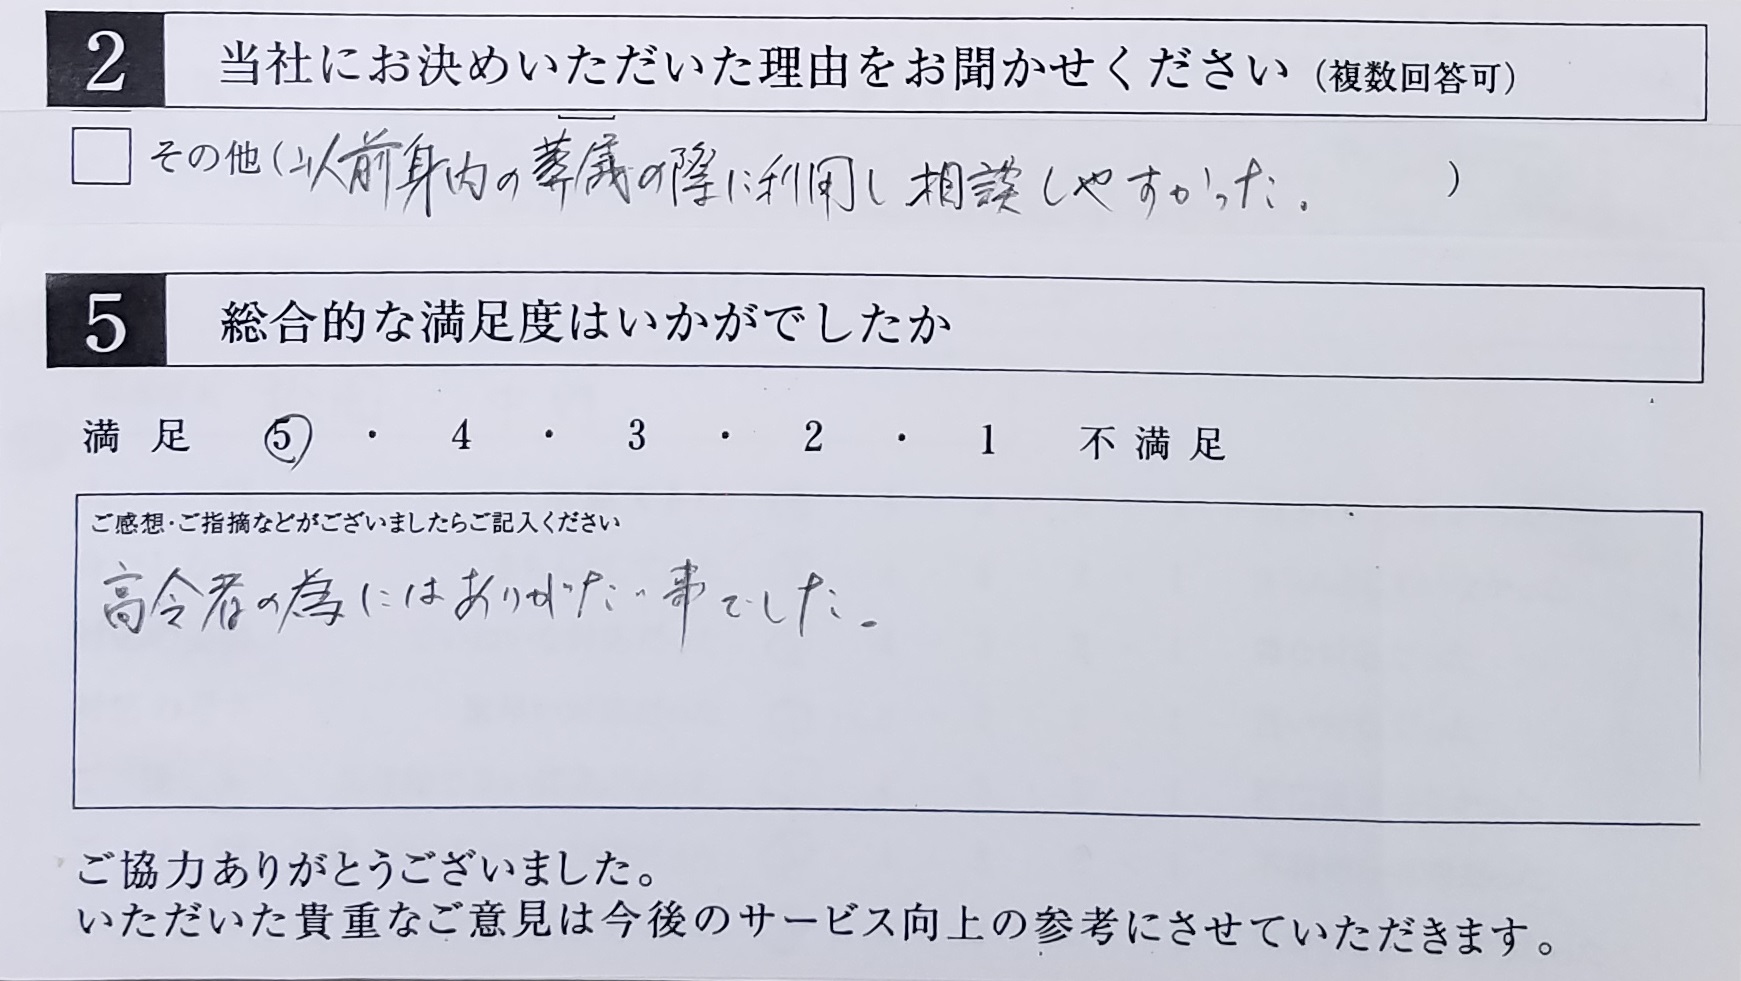 2 当社にお決めいただいた理由をお聞かせください（複数回答可）
その他（以前身内の葬儀の際に利用し相談しやすかった。）
5 総合的な満足度はいかがでしたか
満足 5 ・ 4 ・ 3 ・ 2 ・ 1 不満足
ご感想・ご指摘などがございましたらご記入ください
高令者の為にはありがたい事でした。
ご協力ありがとうございました。
いただいた貴重なご意見は今後のサービス向上の参考にさせていただきます。